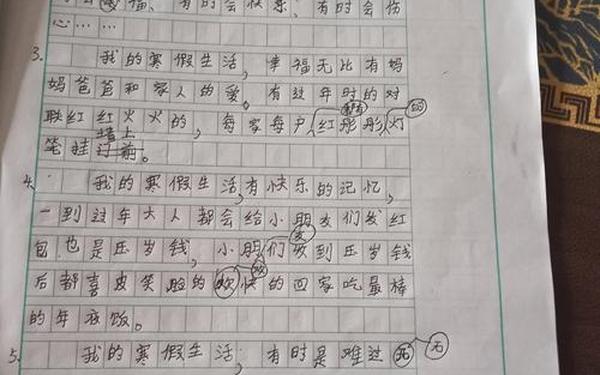 福、有时会快乐，有时会伤
心……
3. 我的寒假生活，幸福无比有妈
妈爸爸和家人的爱。有过年时的对
联红红火火的，每家每户，红彤彤，灯
墙上
笼挂过前。
4. 我的寒假生活，有快乐的记忆，
一到过年大人都会给小朋友们发红
包也是压岁钱，小朋们收到压岁钱
友
后都喜皮笑脸的欢快的回家吃最棒
的年夜饭。
5. 我的寒假生活，有时是难过 无